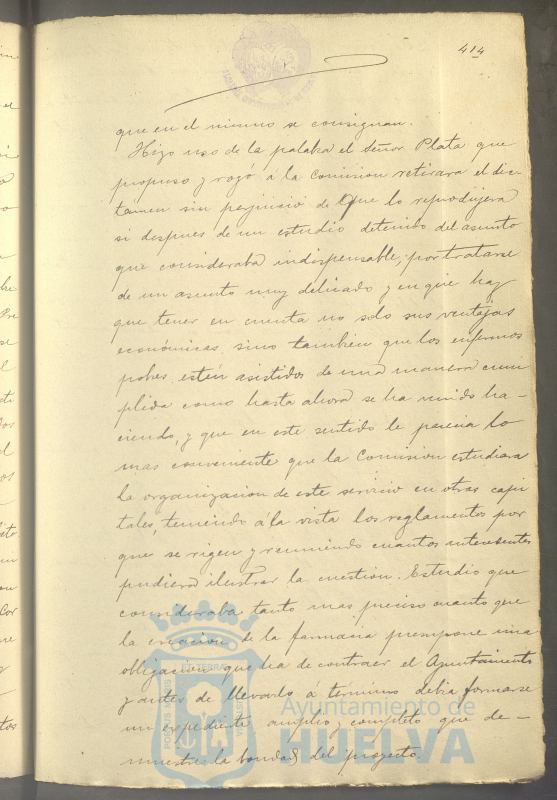 414
que en el mismo se consignan.
Hizo uso de la palabra el Señor Plata que
propuso y rogó á la Comision retirara el dic-
tamen sin perjuicio de que lo reprodujera
si despues de un estudio detenido del asunto
que consideraba indispensable, por tratarse
de un asunto muy delicado y en que hay
que tener en cuenta no solo sus ventajas
económicas sino tambien que los enfermos
pobres estén asistidos de una manera cum
plida como hasta ahora se ha venido ha-
ciendo, y que en este sentido le parecia lo
mas conveniente que la Comision estudiara
la organizacion de este servicio en otras capi
tales, teniendo á la vista los reglamentos por
que se rigen y reuniendo cuantos antecedentes
pudiera ilustrar la cuestion. Estudio que
consideraba tanto mas preciso cuanto que
la creacion de la farmacia presupone una
obligacion que ha de contraer el Ayuntamiento
y antes de llevarlo á término debia formarse
un expediente amplio y completo que de-
muestre la bondad del proyecto.
Ayuntamiento de
HUELVA